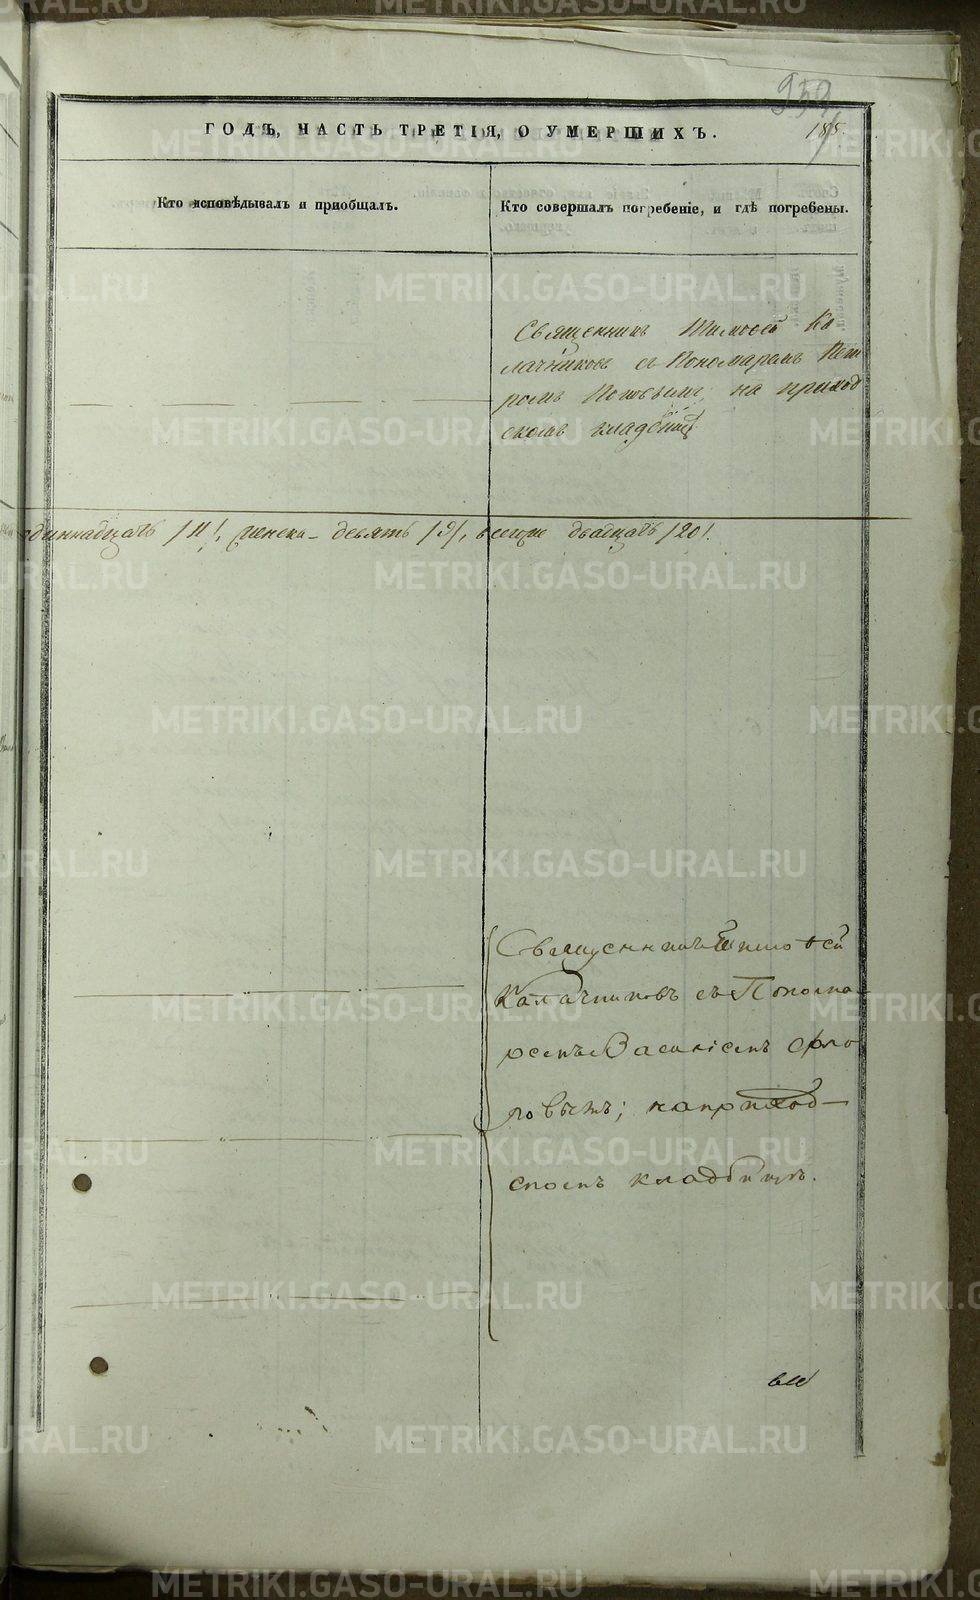 959
ГОДѢ, ЧАСТЬ ТРЕТІЯ, О УМЕРШИХЪ.
185
Кто исповѣдывалъ и пріобщалъ.
Кто совершалъ погребеніе, и гдѣ погребены.
Священникъ Тимоѳей Ка
лачниковъ съ Пономаремъ Пет
ромъ Поповымъ, на приход
скомъ кладбищѣ
одиннадцать /11/, женска – девять /9/, всего двадцать /20/.
Священникъ Тимоѳей
Калачниковъ съ Понома-
ремъ Василіемъ
ловымъ; на приход-
скомъ кладбищѣ.
METRIKI.GASO-URAL.RU